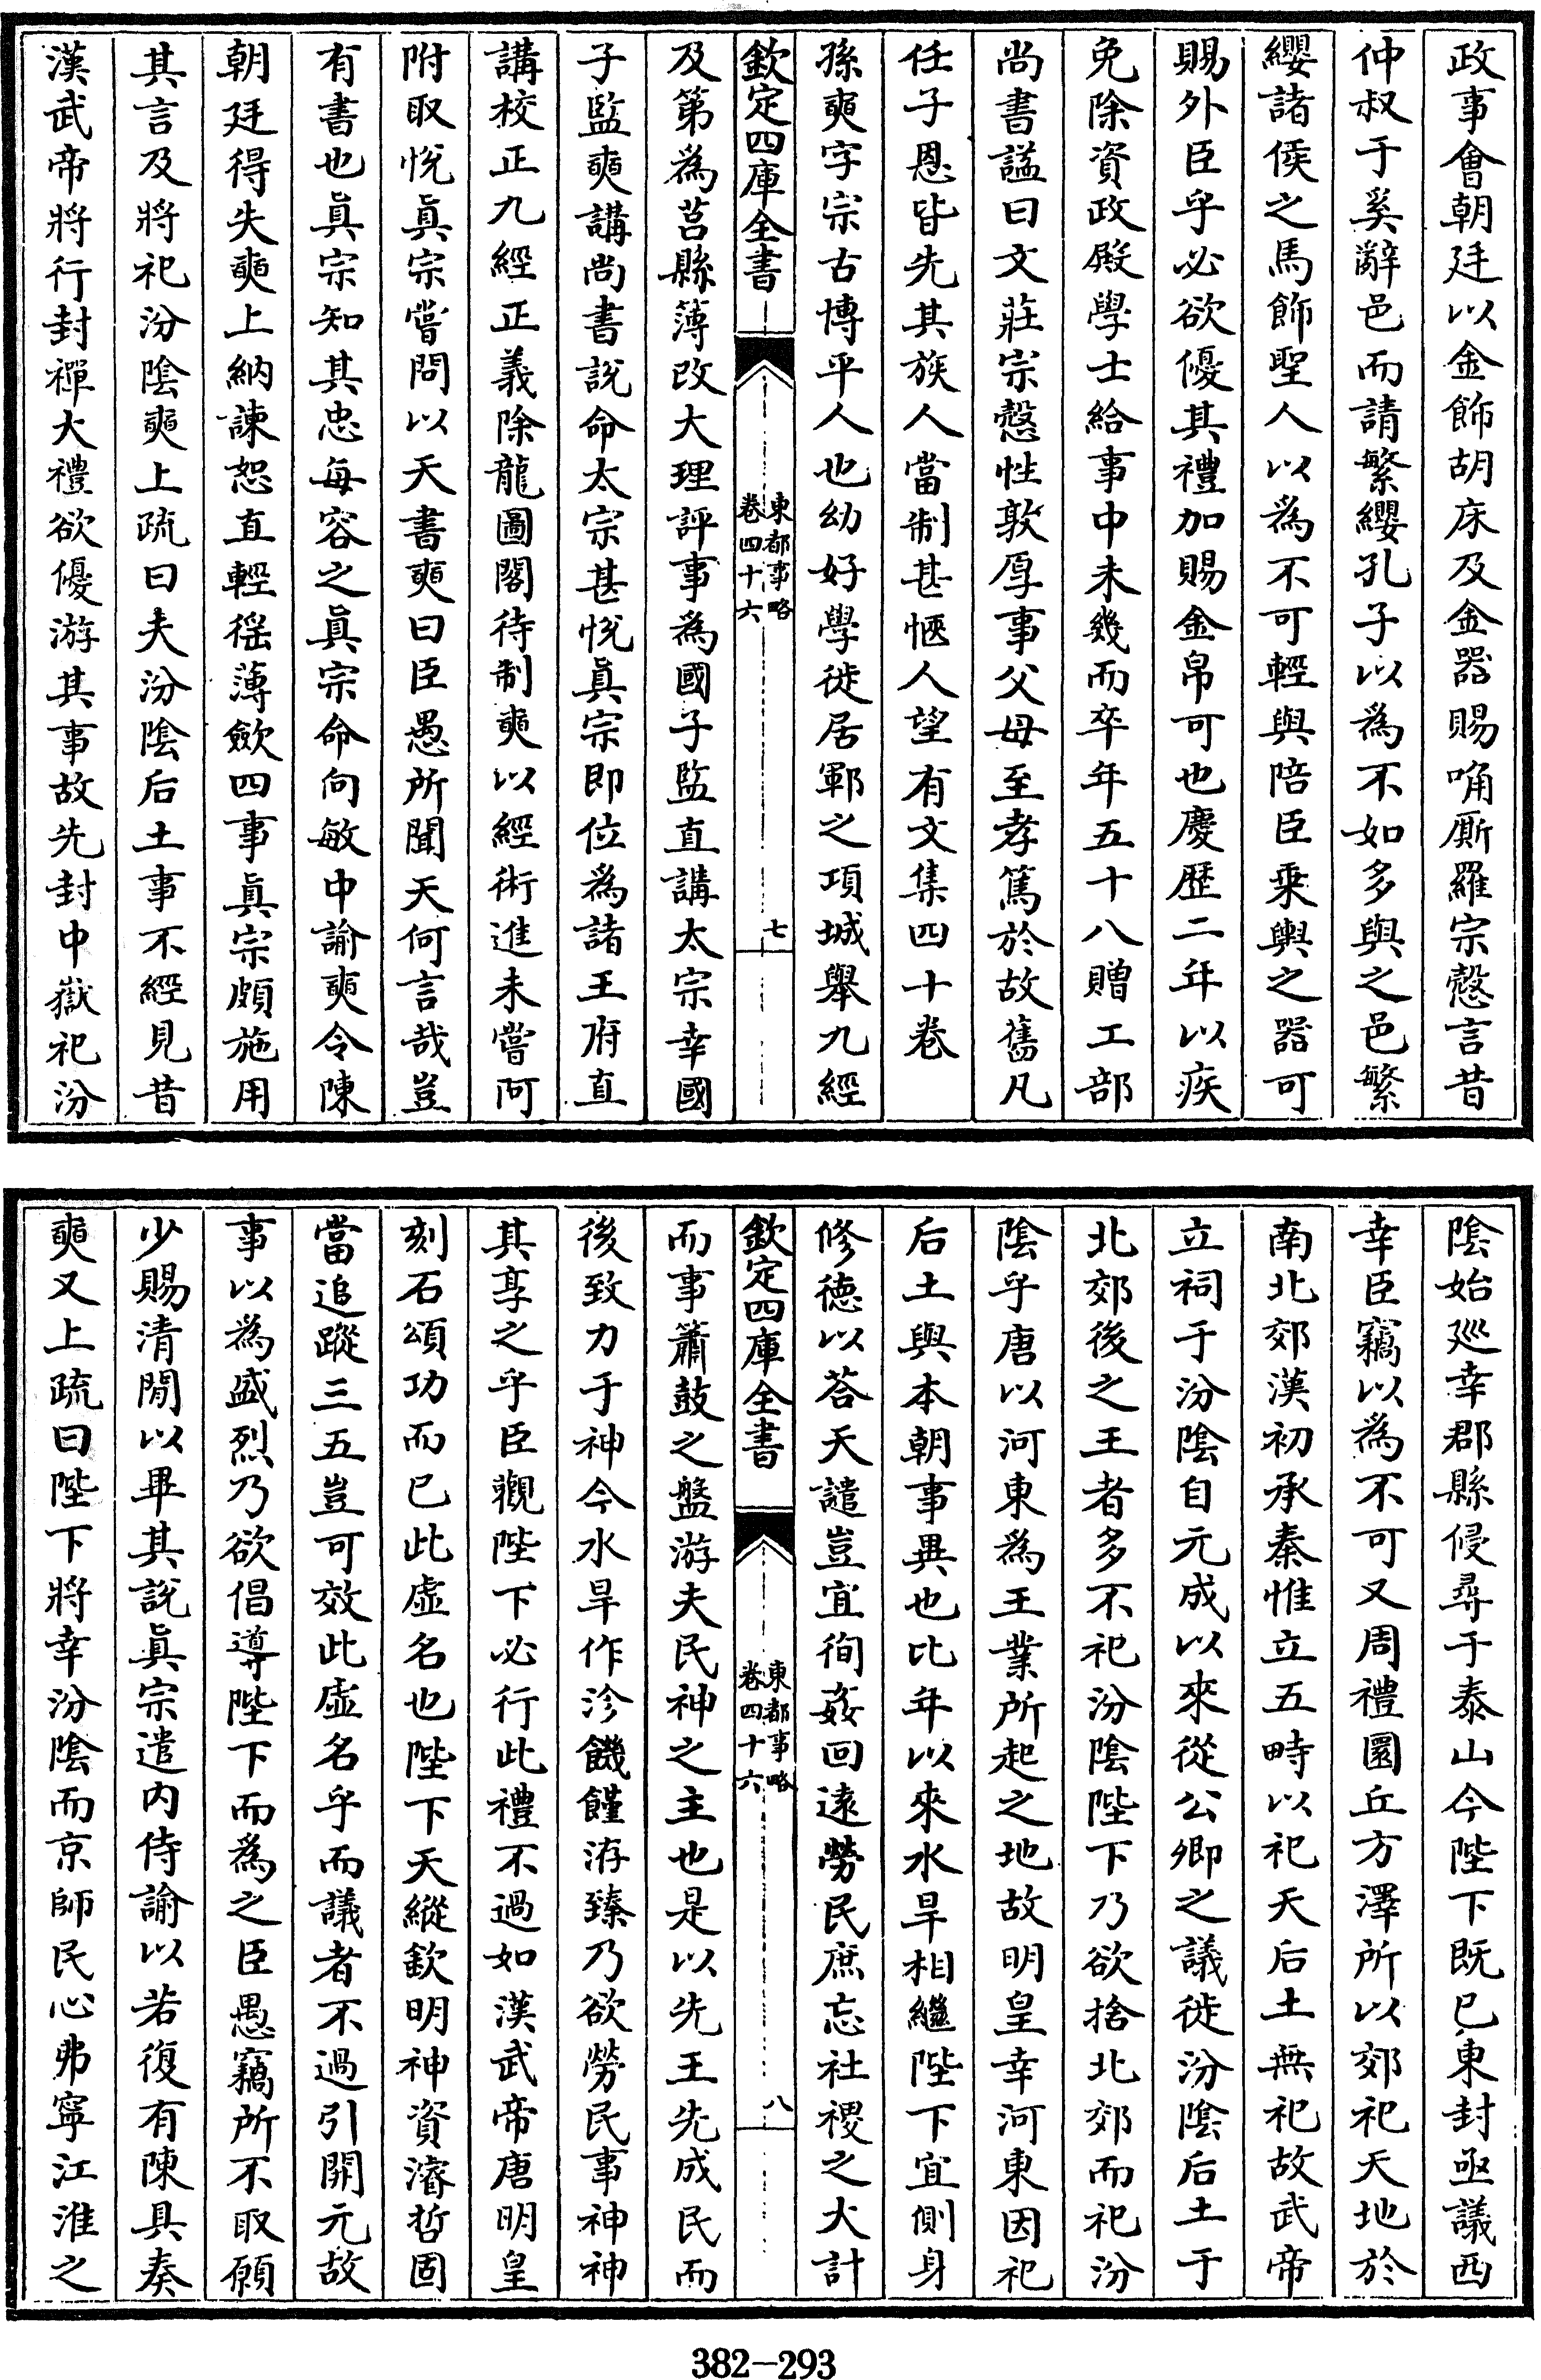 政事會朝廷以金飾胡床及金器賜唃厮羅宗慤言昔
仲叔于奚辭邑而請繁纓孔子以為不如多與之邑繁
纓諸侯之馬飾聖人以為不可輕與陪臣乗輿之器可
賜外臣乎必欲優其禮加賜金帛可也慶歴二年以疾
免除資政殿學士給事中未幾而卒年五十八贈工部
尚書諡曰文莊宗慤性敦厚事父母至孝篤於故舊凡
任子恩皆先其族人當制甚愜人望有文集四十卷
孫奭字宗古博平人也幼好學徙居鄆之項城舉九經
欽定四庫全書
東都事略
卷四十六
七
及第為莒縣簿改大理評事為國子監直講太宗幸國
子監奭講尚書說命太宗甚悅眞宗即位為諸王府直
講校正九經正義除龍圖閣待制奭以經術進未嘗阿
附取悅眞宗嘗問以天書奭曰臣愚所聞天何言哉豈
有書也眞宗知其忠每容之眞宗命向敏中諭奭令陳
朝廷得失奭上納諫恕直輕徭薄歛四事眞宗頗施用
其言及將祀汾隂奭上疏曰夫汾隂后土事不經見昔
漢武帝將行封禪大禮欲優游其事故先封中嶽祀汾
隂始廵幸郡縣侵尋于泰山今陛下既已東封亟議西
幸臣竊以為不可又周禮圜丘方澤所以郊祀天地於
南北郊漢初承秦惟立五畤以祀天后土無祀故武帝
立祠于汾隂自元成以來從公卿之議徙汾隂后土于
北郊後之王者多不祀汾隂陛下乃欲捨北郊而祀汾
隂乎唐以河東為王業所起之地故明皇幸河東因祀
后土與本朝事異也比年以來水旱相繼陛下宜側身
修徳以荅天譴豈宜徇姦回遠勞民庶忘社稷之大計
欽定四庫全書
東都事略
卷四十六
八
而事簫鼓之盤游夫民神之主也是以先王先成民而
後致力于神今水旱作沴饑饉洊臻乃欲勞民事神神
其享之乎臣觀陛下必行此禮不過如漢武帝唐明皇
刻石頌功而已此虛名也陛下天縱欽明神資濬哲固
當追蹤三五豈可效此虛名乎而議者不過引開元故
事以為盛烈乃欲倡導陛下而為之臣愚竊所不取願
少賜清閒以畢其說眞宗遣内侍諭以若復有陳具奏
奭又上疏曰陛下將幸汾隂而京師民心弗寧江淮之
382-293